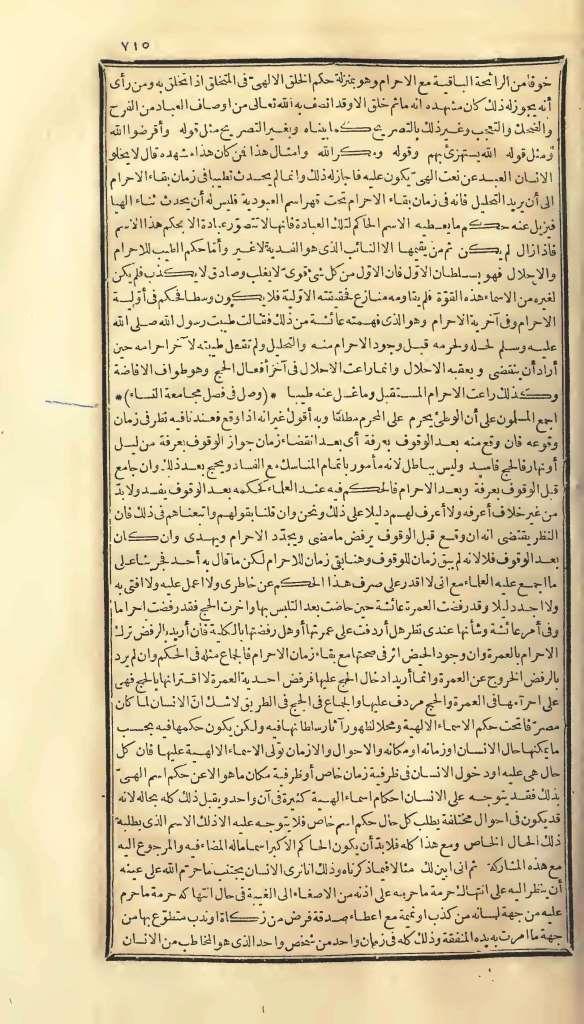 ٧١٥
خوفا من الرائحة الباقية مع الاحرام وهو بمنزلة حكم الخلق الالهى فى المتخلق اذا تخلق به ومن رأى
أنه يجوز له ذلك كان مشهده انه ما ثم خلق الا وقد اتصف به الله تعالى من اوصاف العباد من الفرح
والضحك والتعجب وغير ذلك بالتصريح كما بيناه وبغير التصريح مثل قوله وأقرضوا الله
ومثل قوله الله يستهزئ بهم وقوله ومكر الله وامثال هذا فمن كان هذا مشهده قال لا يخلو
الانسان العبد عن نعت الهى يكون عليه فاجاز له ذلك وانما لم يحدث تطيبا فى زمان بقاء الاحرام
الى أن يريد التحليل فانه فى زمان بقاء الاحرام تحت قهر اسم العبودية فليس له أن يحدث ثناء الهيا
فيزيل عنه حكم ما يعطيه الاسم الحاكم لتلك العبادة فانها لا تتصور عبادة الا بحكم هذا الاسم
فاذا زال لم يكن ثم من يقيمها الا النائب الذى هو الفدية لا غير وأما حكم الطيب للاحرام
والاحلال فهو بسلطان الاول فان الاول من كل شئ قوى لا يغلب وصادق لا يكذب فلم يكن
لغيره من الاسماء هذه القوة فلم يقاومه منازع فحقيقته الاولية فلا يكون وسطا فحكم فى أولية
الاحرام وفى آخرية الاحرام وهو الذى فهمته عائشة من ذلك فقالت طيبت رسول الله صلى الله
عليه وسلم لحله ولحرمه قبل وجود الاحرام منه والتحليل ولم تفعل طيبته لآخر احرامه حين
أراد أن ينقضى ويعقبه الاحلال وانما راعت الاحلال فى آخر أفعال الحج وهو طواف الافاضة
وكذلك راعت الاحرام المستقبل وما غسل عنه طيبا *(وصل فى فصل مجامعة النساء)*
اجمع المسلمون على أن الوطئ يحرم على المحرم مطلقا وبه أقول غير انه اذا وقع فعندنا فيه نظر فى زمان
وقوعه فان وقع منه بعد الوقوف بعرفة أى بعد انقضاء زمان جواز الوقوف بعرفة من ليل
أو نهار فالحج فاسد وليس بباطل لانه مأمور باتمام المناسك مع الفساد ويحج بعد ذلك وان جامع
قبل الوقوف بعرفة وبعد الاحرام فالحكم فيه عند العلماء كحكمه بعد الوقوف يفسد ولا بد
من غير خلاف أعرفه ولا أعرف لهم دليلا على ذلك ونحن وان قلنا بقولهم واتبعناهم فى ذلك فان
النظر يقتضى انه ان وقع قبل الوقوف يرفض ما مضى ويجدد الاحرام ويهدى وان كان
بعد الوقوف فلا لانه لم يبق زمان للوقوف وهنا بقى زمان للاحرام لكن ما قال به أحد فجرينا على
ما اجمع عليه العلماء مع انى لا اقدر على صرف هذا الحكم عن خاطرى ولا اعمل عليه ولا افتى به
ولا اجد دليلا وقد رفضت العمرة عائشة حين حاضت بعد التلبس بها واحرت الحج فقد رفضت احراما
وفى أمر عائشة وشأنها عندى نظر هل أردفت على عمرتها أو هل رفضتها بالكلية فان أريد بالرفض ترك
الاحرام بالعمرة وان وجود الحيض اثر فى صحتها مع بقاء زمان الاحرام فالجماع مثله فى الحكم وان لم يرد
بالرفض الخروج عن العمرة وانما أريد ادخال الحج عليها فرفض احدية العمرة لا اقترانها بالحج فهى
على احرامها فى العمرة والحج مردف عليها والجماع فى الحج فى الطريق لا شك انّ الانسان لما كان
مصرّفا تحت حكم الاسماء الالهية ومحلا لظهور آثار سلطانها فيه ولكن يكون حكمها فيه بحسب
ما يمكنها حال الانسان او زمانه او مكانه والاحوال والازمان تولى الاسماء الالهية عليها فان كل
حال هى عليه او دخول الانسان فى ظرفية زمان خاص أو ظرفية مكان ما هو الا عن حكم اسم الهى
بذلك فقد يتوجه على الانسان احكام اسماء الهية كثيرة فى آن واحد ويقبل ذلك كله بحاله لانه
قد يكون فى احوال مختلفة يطلب كل حال حكم اسم خاص فلا يتوجه عليه الا ذلك الاسم الذى يطلبه
ذلك الحال الخاص ومع هذا كله فلا بد أن يكون الحاكم الاكبر اسما ما له المضاء فيه والمرجوع اليه
مع هذه المشاركة ثم انى ابين لك مثالا فيما ذكرناه وذلك انا نرى الانسان يجتنب ما حرّم الله على عينه
أن ينظر اليه على انتهاك حرمة ما حرم به على اذنه من الاصغاء الى الغيبة فى حال انتهاكه حرمة ما حرم
عليه من جهة لسانه من كذب او نميمة مع اعطاء صدقة فرض من زكاة او ندب متطوّع بها من
جهة ما امرت به يده المنفقة وذلك كله فى زمان واحد من شخص واحد الذى هو المخاطب من الانسان